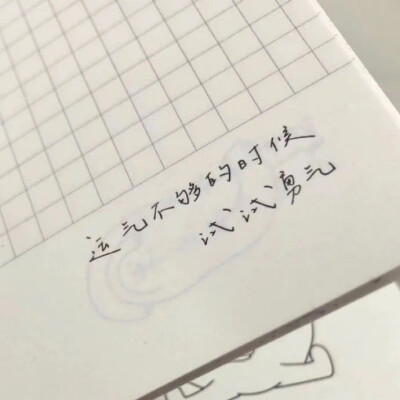 运气不够的时候
试试勇气